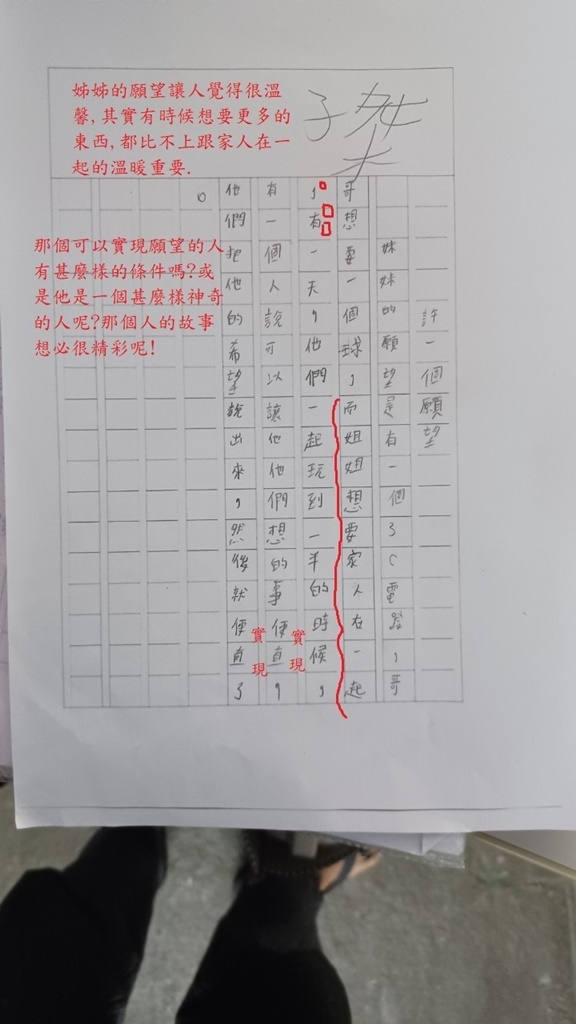 姊姊的願望讓人覺得很溫
馨,其實有時候想要更多的
東西,都比不上跟家人在一
起的溫暖重要.
子桀
許一個願望
妹妹的願望是有一個3C電器,哥
哥想要一個球,而姐姐想要家人在一起
,有一天,他們一起玩到一半的時候,
有一個人說可以讓他他們想的事便直,
實現
他們把他的希望說出來,然後就便直了
實現
。
那個可以實現願望的人
有甚麼樣的條件嗎?或
是他是一個甚麼樣神奇
的人呢?那個人的故事
想必很精彩呢!